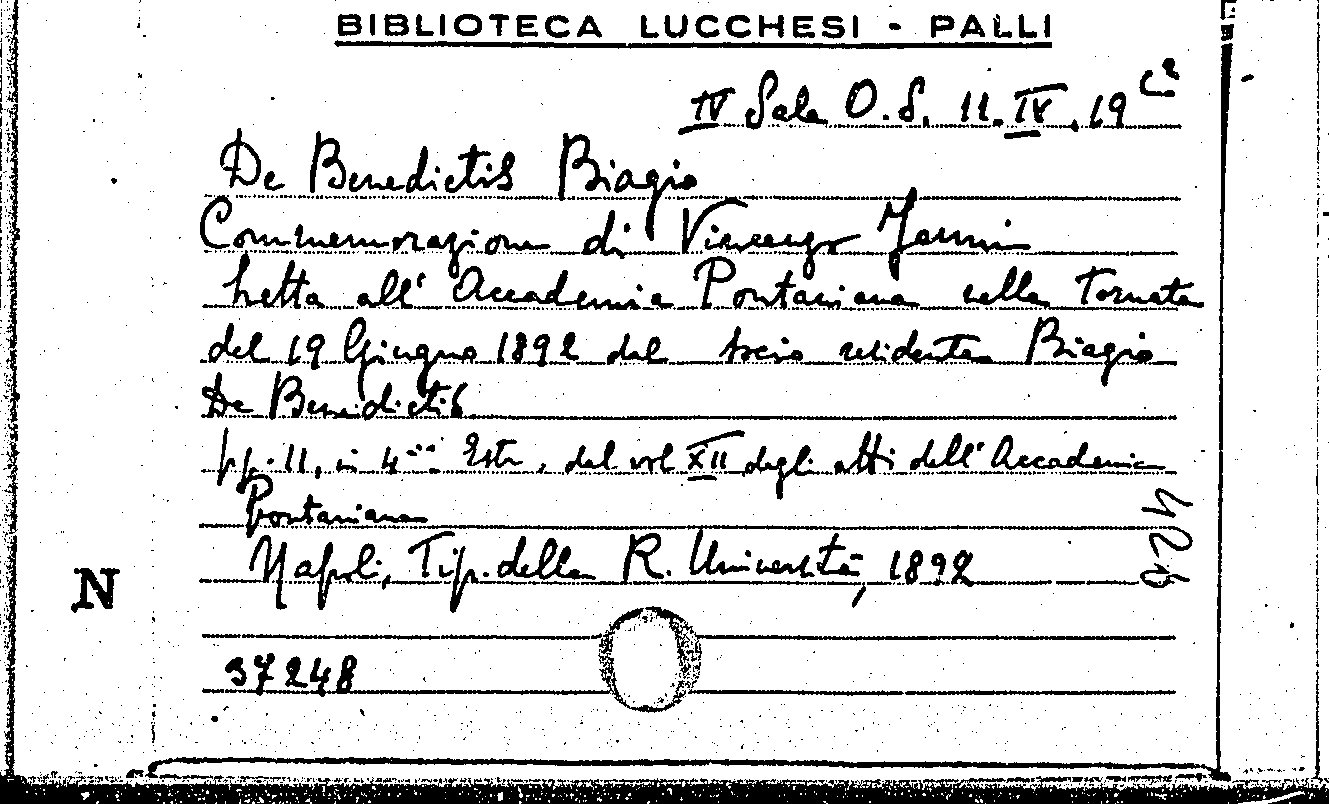 BIBLIOTECA LUCCHESI - PALLI
IV Sala O. S. 11. IV. 19
De Benedictis Biagio
Commemorazione di Vincenzo Jannini
letta all' Accademia Pontaniana nella Tornata
del 19 Giugno 1892 dal socio residente Biagio
De Benedictis
pp. 11, in 4° Estr. dal vol XII degli atti dell' Accademia
Pontaniana
Napoli, Tip. della R. Università, 1892
N
37248